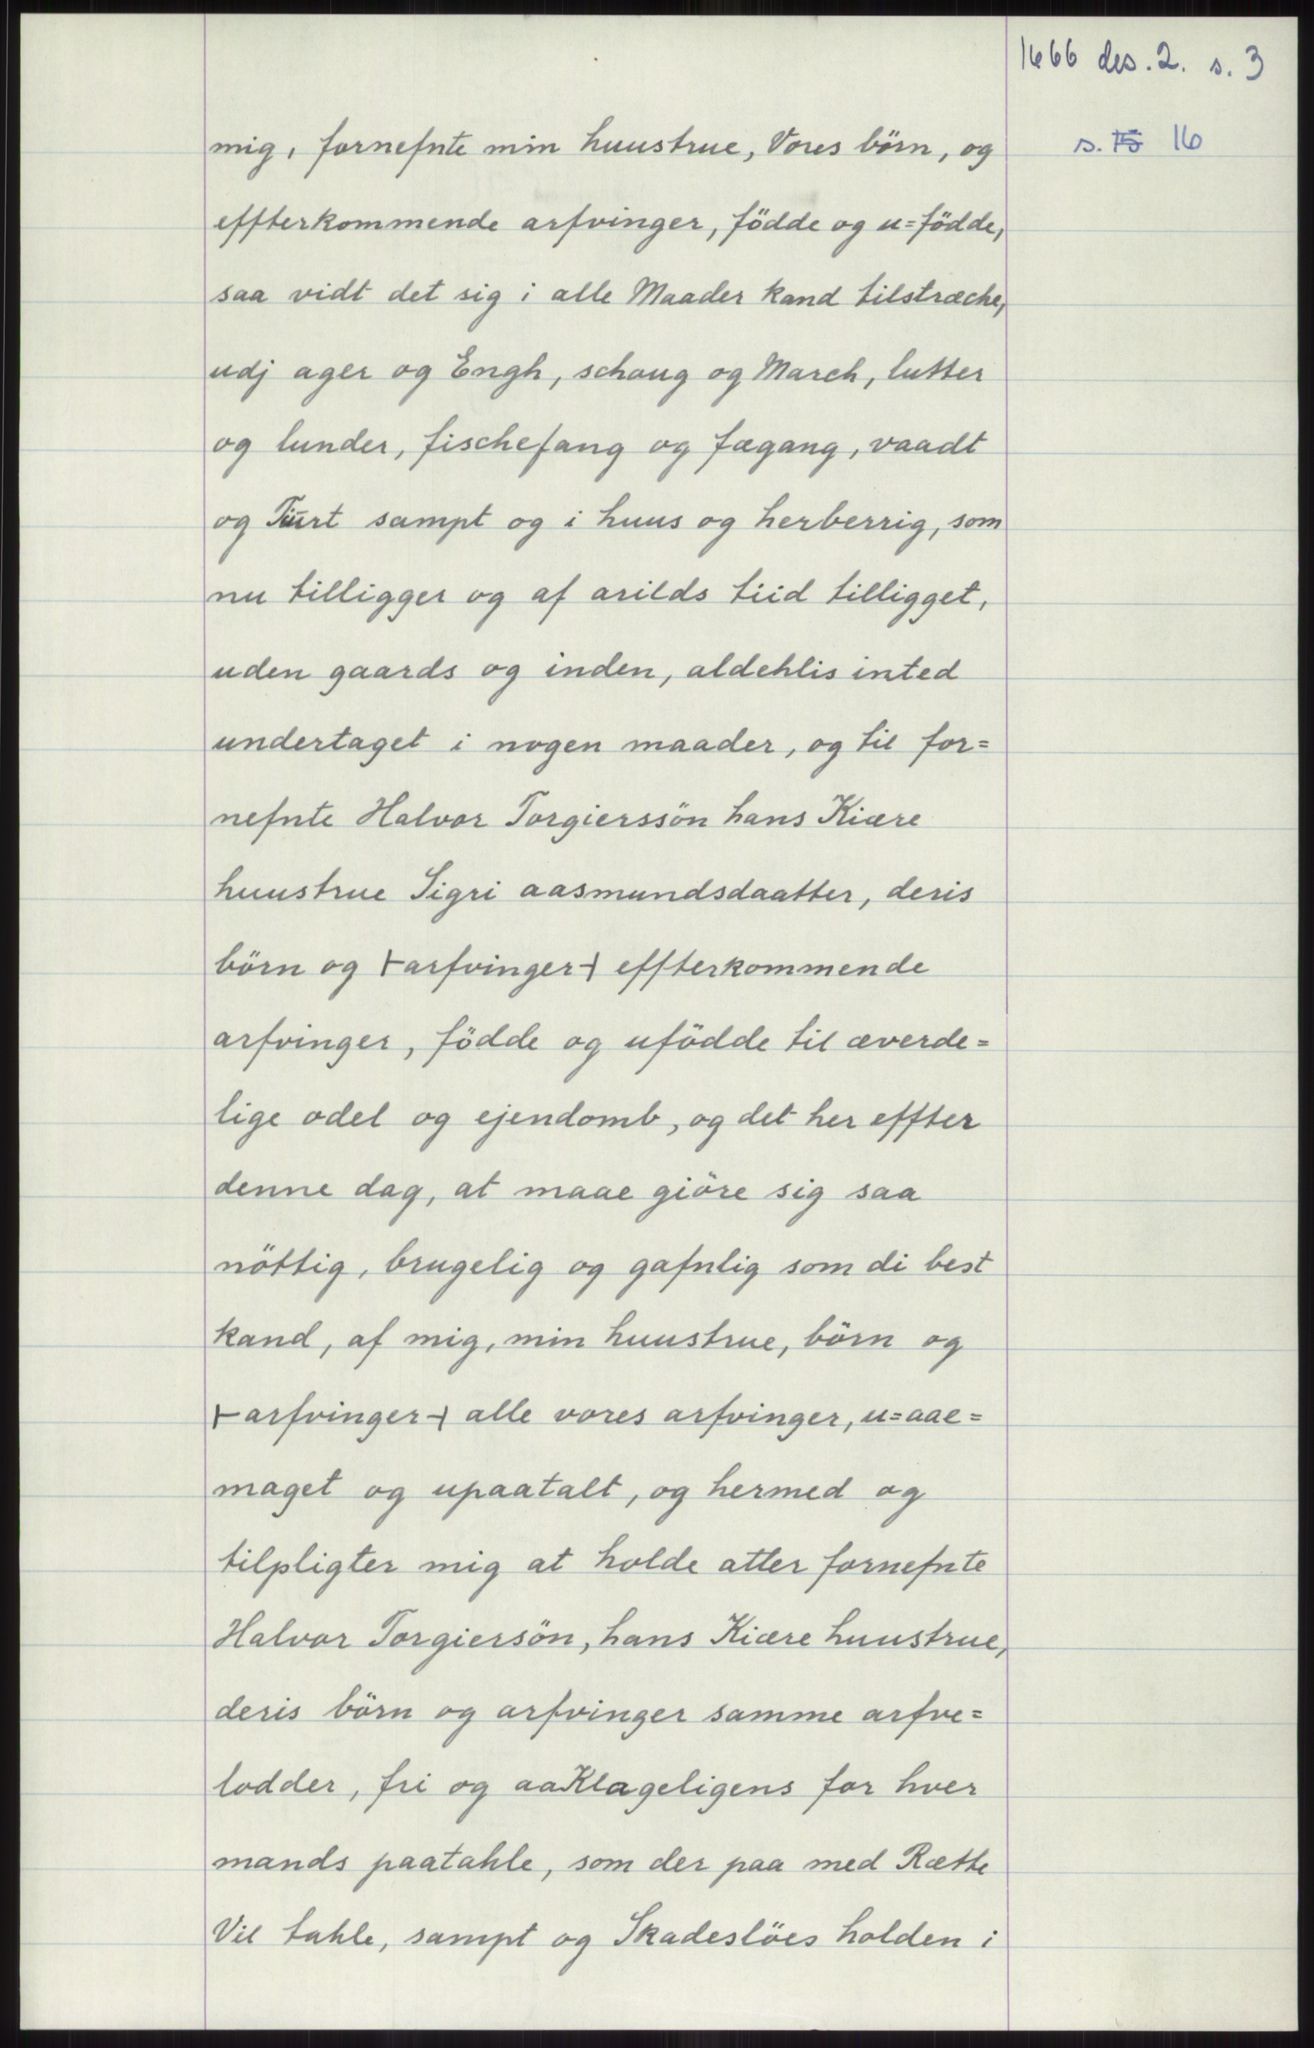 1666 des. 2. s. 3
s. 15 16
mig, fornefnte min huustrue, Vores börn, og
effterkommende arfvinger, födde og u=födde,
saa vidt det sig i alle Maader kand tilstræche,
udj ager og Engh, schoug og March, lutter
og lunder, fischefang og fægang, vaadt
og Türt sampt og i huus og herberrig, som
nu tilligger og af arilds tiid tilligget,
uden gaards og inden, aldehlis inted
undertaget i nogen maader, og til for=
nefnte Halvor Torgierssön hans Kiære
huustrue Sigri aasmundsdaatter, deris
börn og ⊢arfvinger⊣ effterkommende
arfvinger, födde og ufödde til æverde=
lige odel og ejendomb, og det her effter
denne dag, at maae giöre sig saa
nöttig, brugelig og gafnlig som di best
kand, af mig, min huustrue, börn og
⊢arfvinger⊣ alle vores arfvinger, u=aae=
maget og upaatalt, og hermed og
tilpligter mig at holde atter fornefnte
Halvor Torgiersön, hans Kiære huustrue,
deris börn og arfvinger samme arfve=
lodder, fri og aaKlageligens for hver
mands paatahle, som der paa med Rætte
Vil tahle, sampt og Skadeslöes holden i